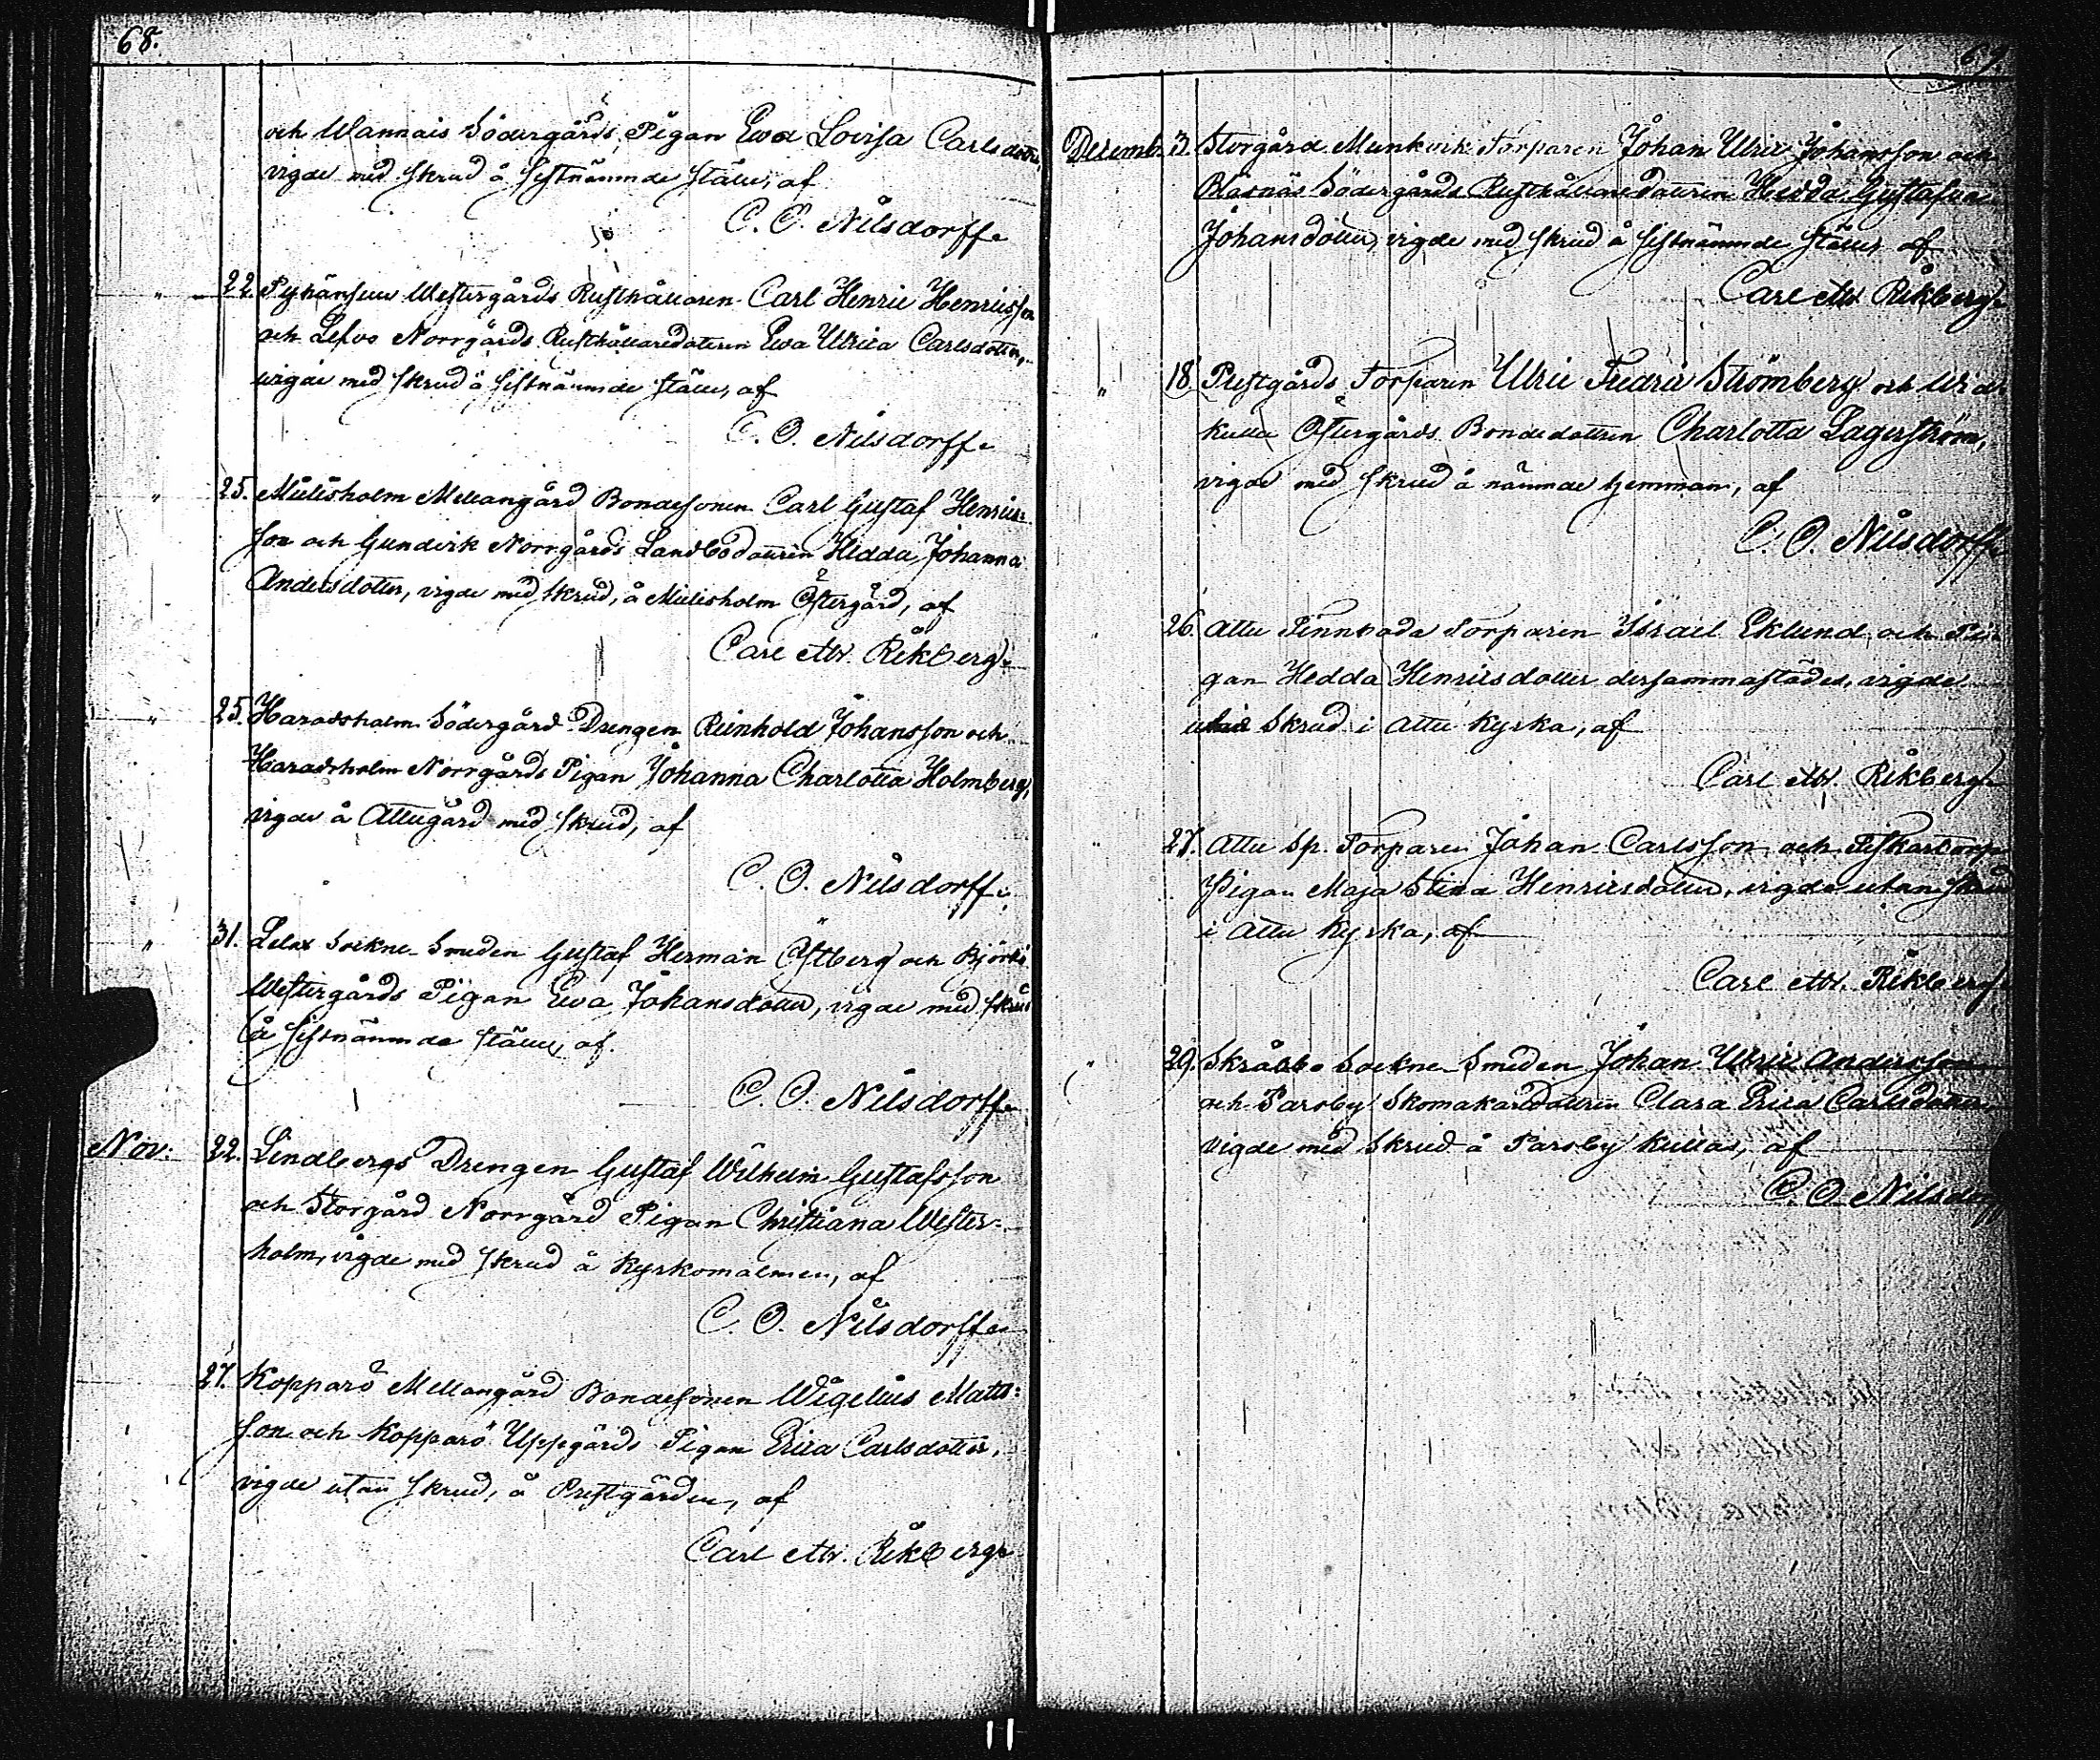 68.
och Wannais Södergårds Pigan Ewa Lovisa Carlsdotter,
vigde med skrud å sistnämnde ställe, af
C. O. Nilsdorff
22. Pyhänsuu Westergårds Rusthållaren Carl Henric Henricsson
och Lefvo Norrgårds Rusthållaredottren Ewa Ulrica Carlsdotter,
vigde med skrud å sistnämnde ställe, af
C. O. Nilsdorff
25. Mielisholm Mellangård Bondesonen Carl Gustaf Henrics-
son och Gundvik Norrgårds Landbodottren Hedda Johanna
Andersdotter, vigde med skrud, å Mielisholm Östergård, af
Carl Rikberg
25. Haradsholm Södergård Drengen Reinhold Johansson och
Haradsholm Norrgårds Pigan Johanna Charlotta Holmberg,
vigde å Attugård med skrud, af
C. O. Nilsdorff
31. Lelax Sockne-Smeden Gustaf Herman Östberg och Björkö
Westergårds Pigan Ewa Johansdotter, vigde med skrud
å sistnämnde ställe, af
C. O. Nilsdorff
Nov: 22. Lindbergs Drengen Gustaf Wilhelm Gustafsson
och Storgård Norrgård Pigan Christiana Wester-
holm, vigde med skrud å Kyrkomalmen, af
C. O. Nilsdorff
27. Kopparö Mellangård Bondesonen Wigelius Matts-
son och Kopparö Uppgårds Pigan Erica Carlsdotter,
vigde utan skrud, å Prestgården, af
Carl Rikberg
69.
Decemb. 3. Storgård Munkvik Torparen Johan Ulric Johansson och
Bläsnäs Södergårds Rusthållaredottren Hedda Gustafva
Johansdotter, vigde med skrud å sistnämnde ställe, af
Carl Rikberg
18. Prestgårds Torparen Ulric Fredric Strömberg och
kulla Östergårds Bondedottren Charlotta Lagerström,
vigde med skrud å nämnde hemman, af
C. O. Nilsdorff
26. Attu Finnbada Torparen Israel Eklund, och Pi-
gan Hedda Henricsdotter dersammastädes, vigde
utan skrud i Attu Kyrka, af
Carl Rikberg
27. Attu Sp. Torparen Johan Carlsson och Fiskartorp
Pigan Maja Stina Henricsdotter, vigde utan skrud
i Attu Kyrka, af
Carl Rikberg
29. Skråbbo Sockne-Smeden Johan Ulric Andersson
och Parsby Skomakaredottren Clara Erica Carlsdotter,
vigde med skrud å Parsby Kullas, af
C. O. Nilsdorff